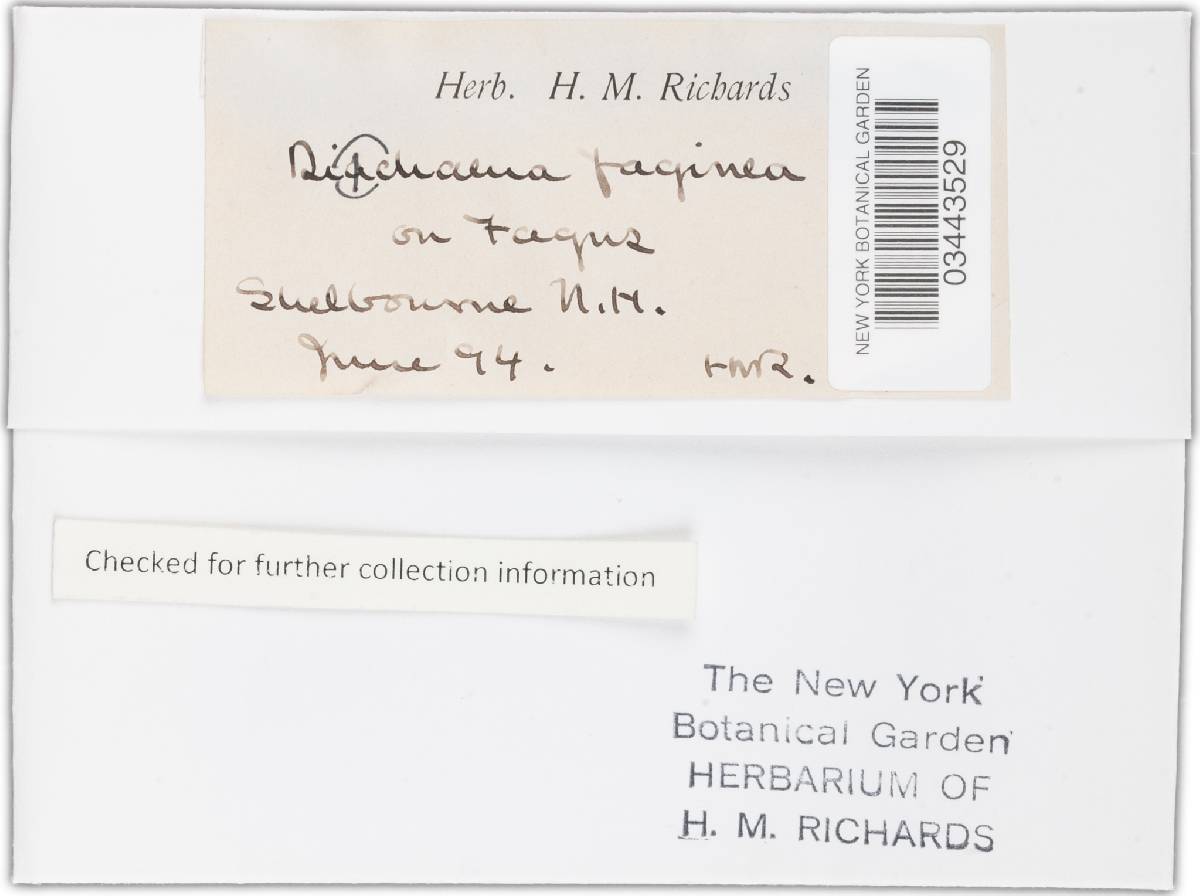 Herb. H. M. Richards
Dichaena faginea
on Fagus
Shelbourne N.H.
June 94.
HMR.
NEW YORK BOTANICAL GARDEN
03443529
Checked for further collection information
The New York
Botanical Garden
HERBARIUM OF
H. M. RICHARDS